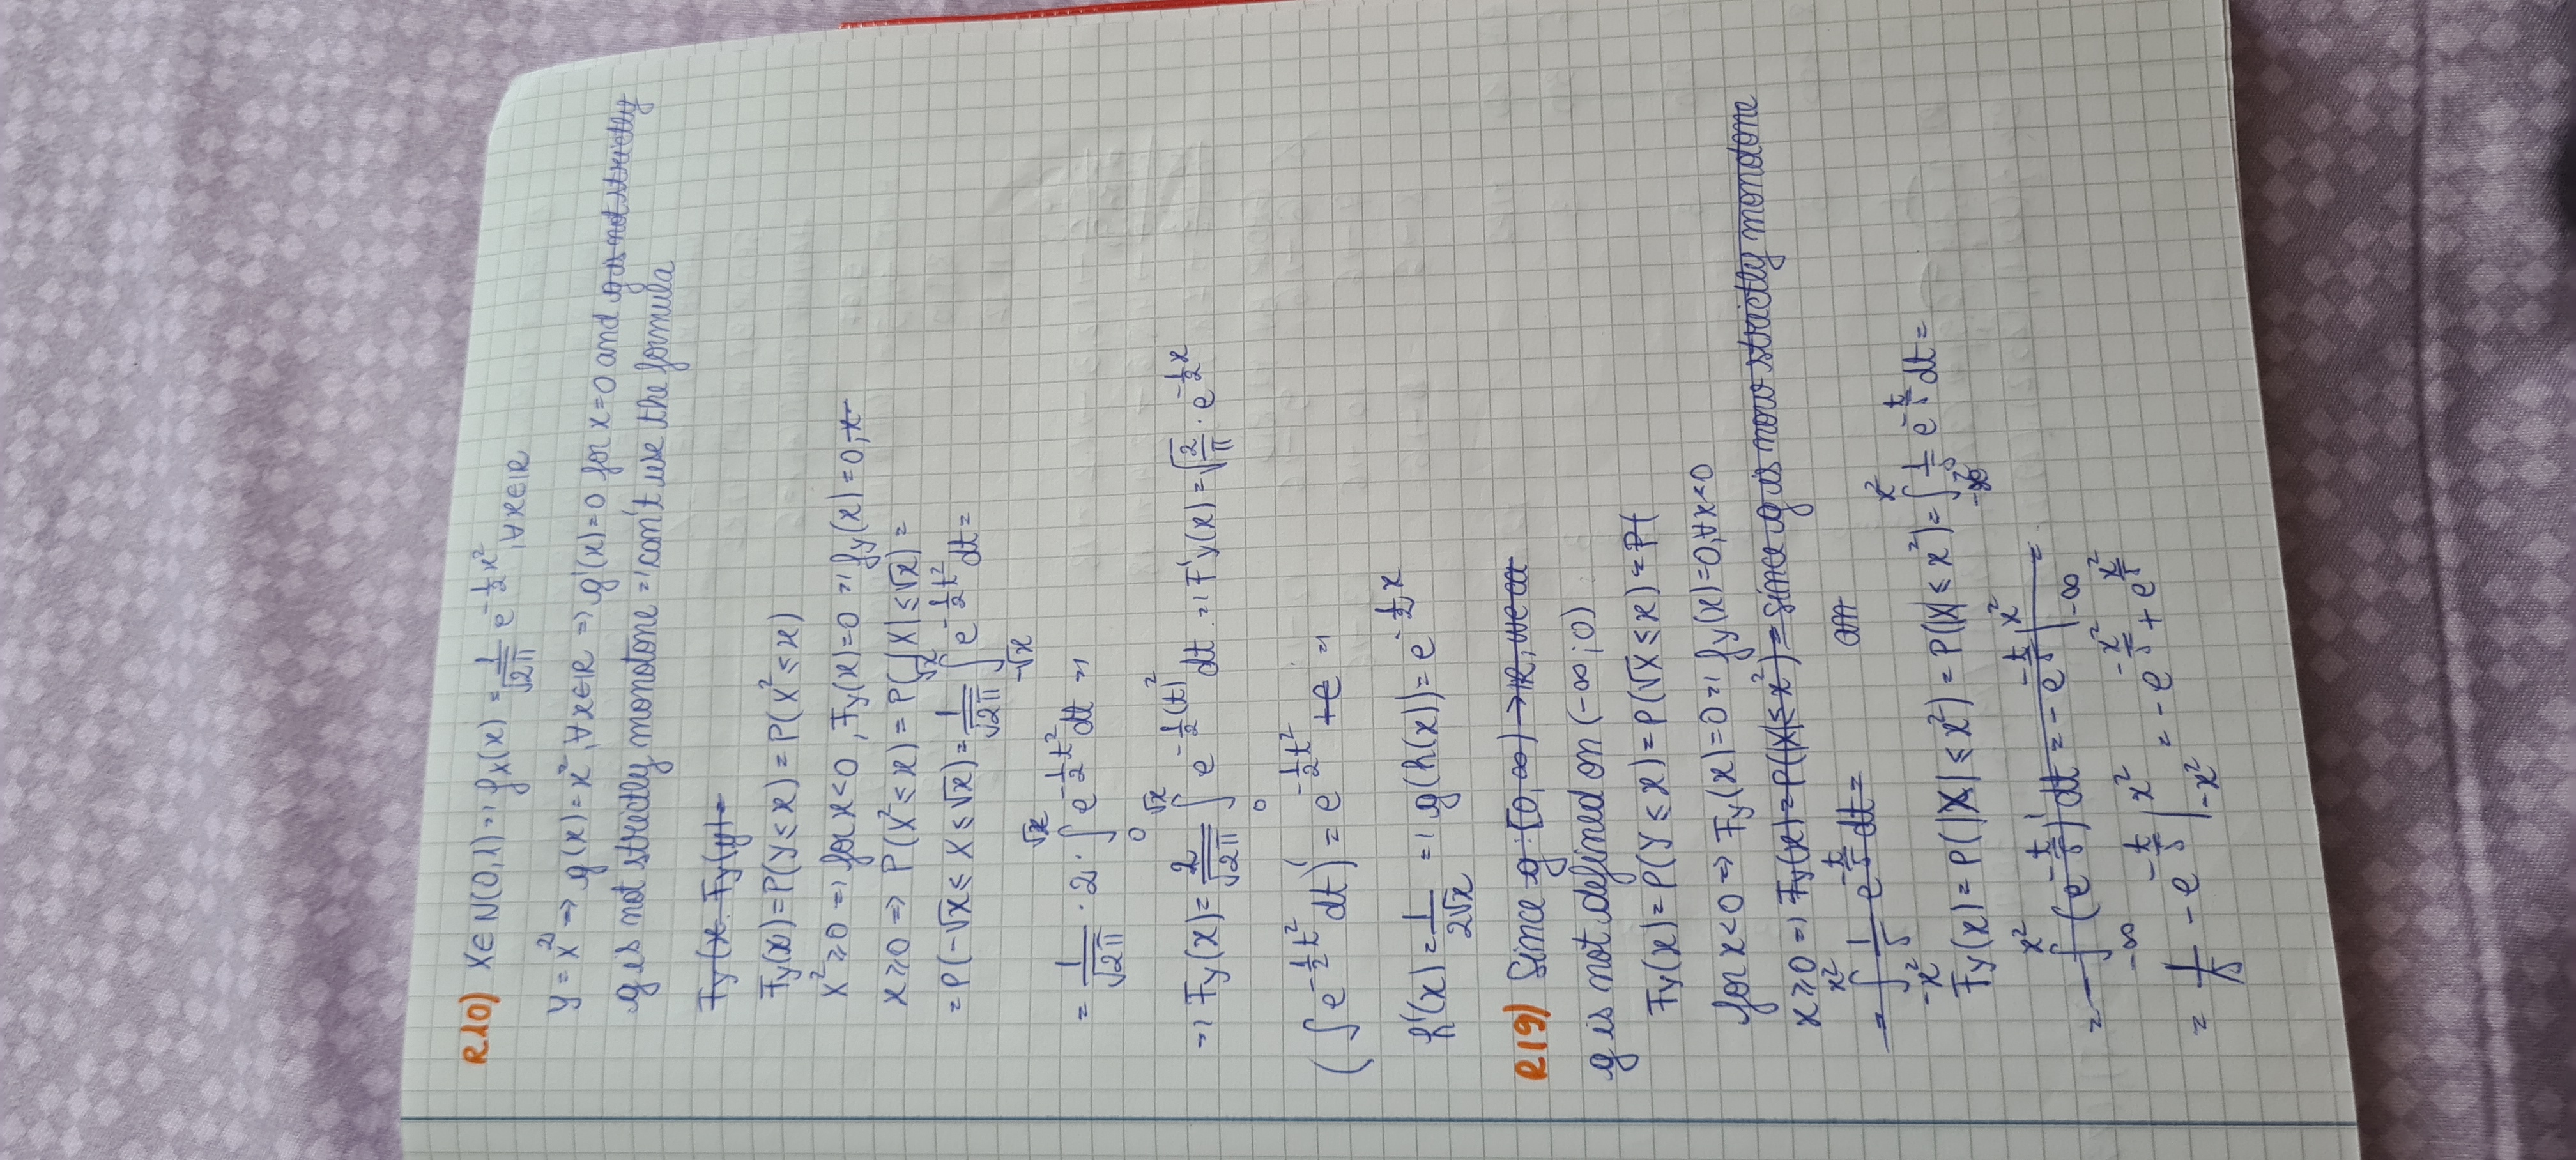 R10) X∈N(0,1) => f_X(x) = 1/√2π e^{-1/2 x²}, ∀x∈R
Y = X² → g(x) = x², ∀x∈R => g'(x)=0 for x=0 and g is not strictly
g is not strictly monotone => can't use the formula
Fy(x. Fy(y)=
Fy(x) = P(Y ≤ x) = P(X² ≤ x)
X² ≥ 0 => for x<0, Fy(x)=0 => fy(x)=0, x
x ≥ 0 => P(X² ≤ x) = P(|X| ≤ √x) =
= P(-√x ≤ X ≤ √x) = 1/√2π ∫_{-√x}^{√x} e^{-1/2 t²} dt =
= 1/√2π · 2 · ∫_0^{√x} e^{-1/2 t²} dt =>
=> Fy(x) = 2/√2π ∫_0^{√x} e^{-1/2 (t)²} dt. => F'y(x) = √(2/π) · e^{-1/2 x}
(∫ e^{-1/2 t²} dt)' = e^{-1/2 t²} + e =>
h'(x) = 1/2√x => g(h(x)) = e^{-1/2 x}
R19) Since g: [0,∞) → R, we ca
g is not defined on (-∞;0)
Fy(x) = P(Y ≤ x) = P(√X ≤ x) = P(
for x<0 => Fy(x) = 0 => fy(x)=0, ∀x<0
x ≥ 0 => Fy(x) = P(|X| ≤ x²) = since g is now strictly monotone
= ∫_{-x²}^{x²} 1/5 e^{-t/5} dt = an
Fy(x) = P(|X| ≤ x²) = P(|X| ≤ x²) = ∫_{-x²}^{x²} 1/5 e^{-t/5} dt =
= - ∫_{-∞}^{x²} (e^{-t/5})' dt = -e^{-t/5} |_{-∞}^{x²} =
= 1/5 -e^{-t/5} |_{-x²}^{x²} = -e^{-x²/5} + e^{x²/5}